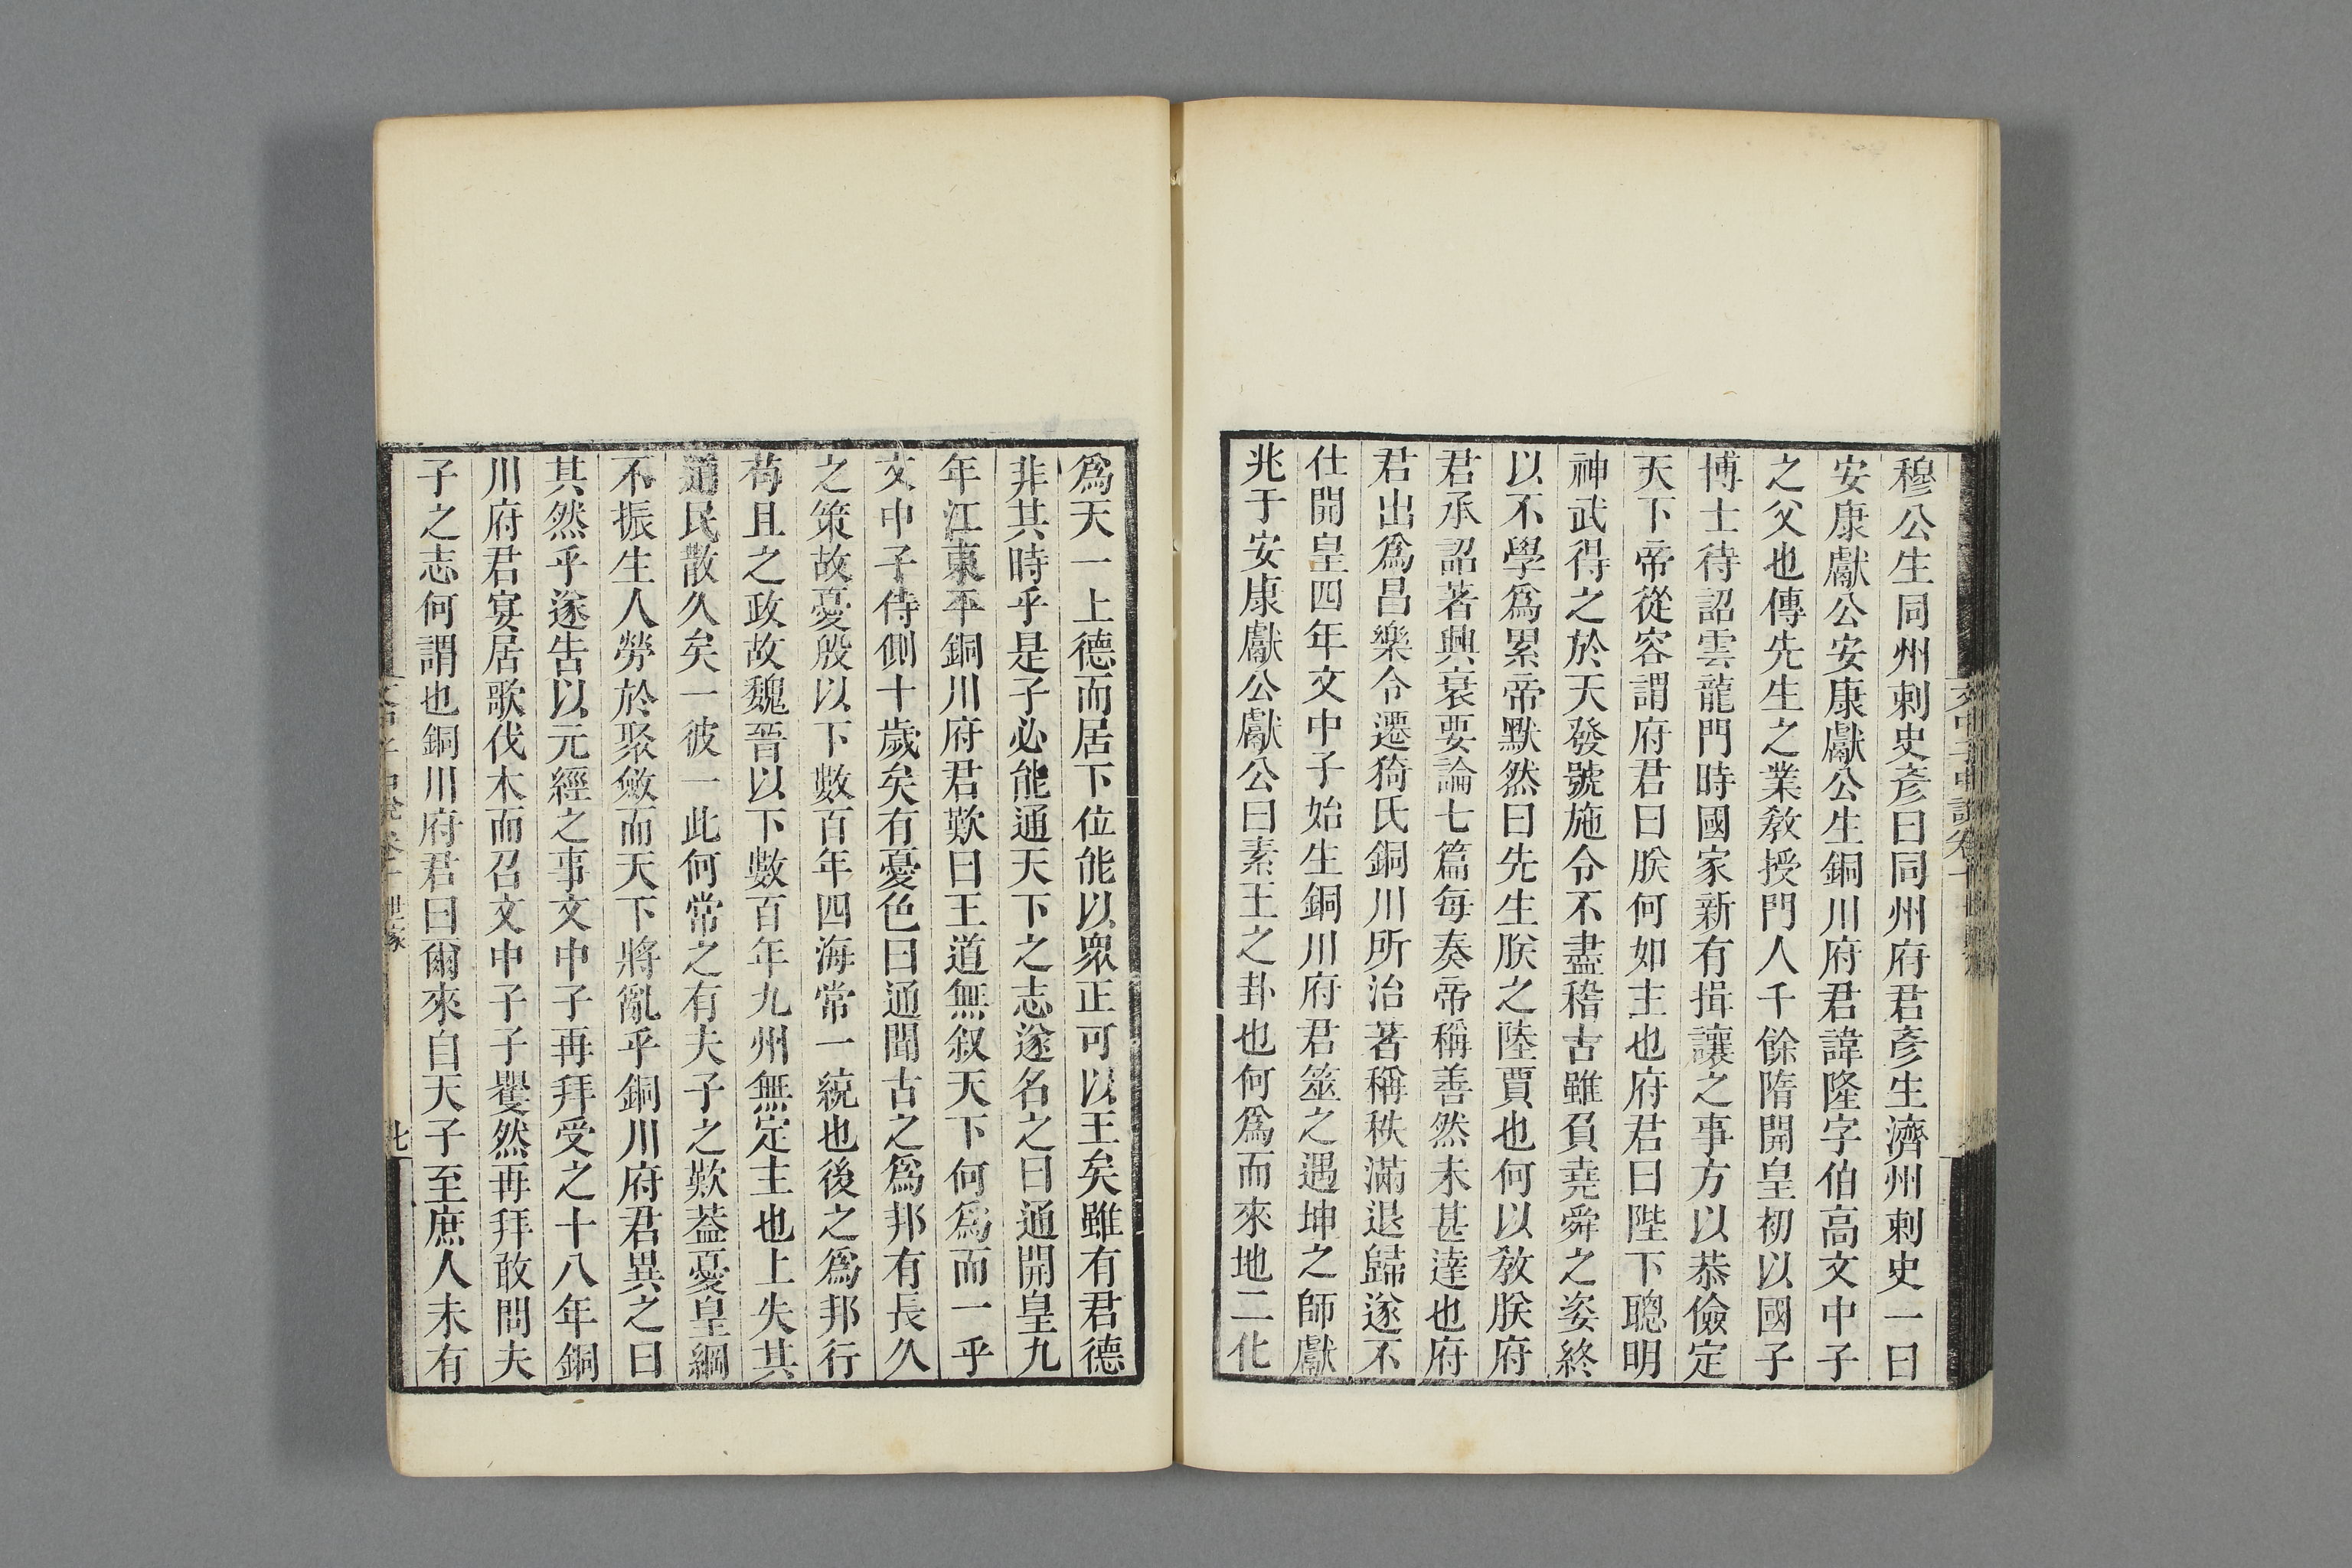 穆公生同州刺史彥曰同州府君彥生濟州刺史一曰
安康獻公安康獻公生銅川府君諱隆字伯高文中子
之父也傳先生之業敎授門人千餘隋開皇初以國子
博士待詔雲龍門時國家新有揖讓之事方以恭儉定
天下帝從容謂府君曰朕何如主也府君曰陛下聰明
神武得之於天發號施令不盡稽古雖負堯舜之姿終
以不學爲累帝默然曰先生朕之陸賈也何以敎朕府
君承詔著興衰要論七篇每奏帝稱善然未甚達也府
君出爲昌樂令遷猗氏銅川所治著稱秩滿退歸遂不
仕開皇四年文中子始生銅川府君筮之遇坤之師獻
兆于安康獻公獻公曰素王之卦也何爲而來地二化
爲天一上德而居下位能以衆正可以王矣雖有君德
非其時乎是子必能通天下之志遂名之曰通開皇九
年江東平銅川府君歎曰王道無叙天下何爲而一乎
文中子侍側十歲矣有憂色曰通聞古之爲邦有長久
之策故憂殷以下數百年四海常一統也後之爲邦行
苟且之政故魏晉以下數百年九州無定主也上失其
道民散久矣一彼一此何常之有夫子之歎葢憂皇綱
不振生人勞於聚斂而天下將亂乎銅川府君異之曰
其然乎遂告以元經之事文中子再拜受之十八年銅
川府君宴居歌伐木而召文中子子矍然再拜敢問夫
子之志何謂也銅川府君曰爾來自天子至庶人未有